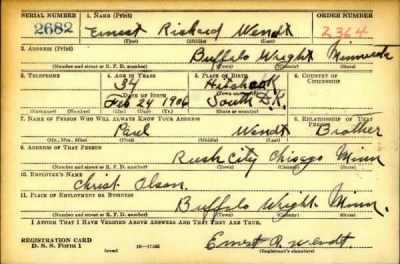 SERIAL NUMBER 1. NAME (Print) ORDER NUMBER
2682 Ernest Richard Wendt 2364
(First) (Middle) (Last)
2. ADDRESS (Print)
Buffalo Wright Minnesota
(Number and street or R. F. D. number) (Town) (County) (State)
3. TELEPHONE 4. AGE IN YEARS 5. PLACE OF BIRTH 6. COUNTRY OF CITIZENSHIP
34 Hitchcock
DATE OF BIRTH (Town or county)
Feb 24 1906 South Dk.
(Exchange) (Number) (Mo.) (Day) (Yr.) (State or country)
7. NAME OF PERSON WHO WILL ALWAYS KNOW YOUR ADDRESS 8. RELATIONSHIP OF THAT PERSON
Paul Wendt Brother
(Mr., Mrs., Miss) (First) (Middle) (Last)
9. ADDRESS OF THAT PERSON
Rush City Chisago Minn
(Number and street or R. F. D. number) (Town) (County) (State)
10. EMPLOYER'S NAME
Christ Olson
11. PLACE OF EMPLOYMENT OR BUSINESS
Buffalo Wright Minn.
(Number and street or R. F. D. number) (Town) (County) (State)
I AFFIRM THAT I HAVE VERIFIED ABOVE ANSWERS AND THAT THEY ARE TRUE.
REGISTRATION CARD
D. S. S. Form 1 Ernest R. Wendt
(Registrant's signature)